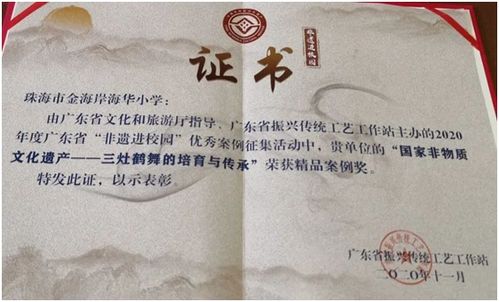 非遗进校园
证书
珠海市金海岸海华小学：
由广东省文化和旅游厅指导、广东省振兴传统工艺工作站主办的2020
年度广东省“非遗进校园”优秀案例征集活动中，贵单位的“国家非物质
文化遗产——三灶鹤舞的培育与传承”荣获精品案例奖。
特发此证，以示表彰。
广东省振兴传统工艺工作站
二〇二〇年十一月